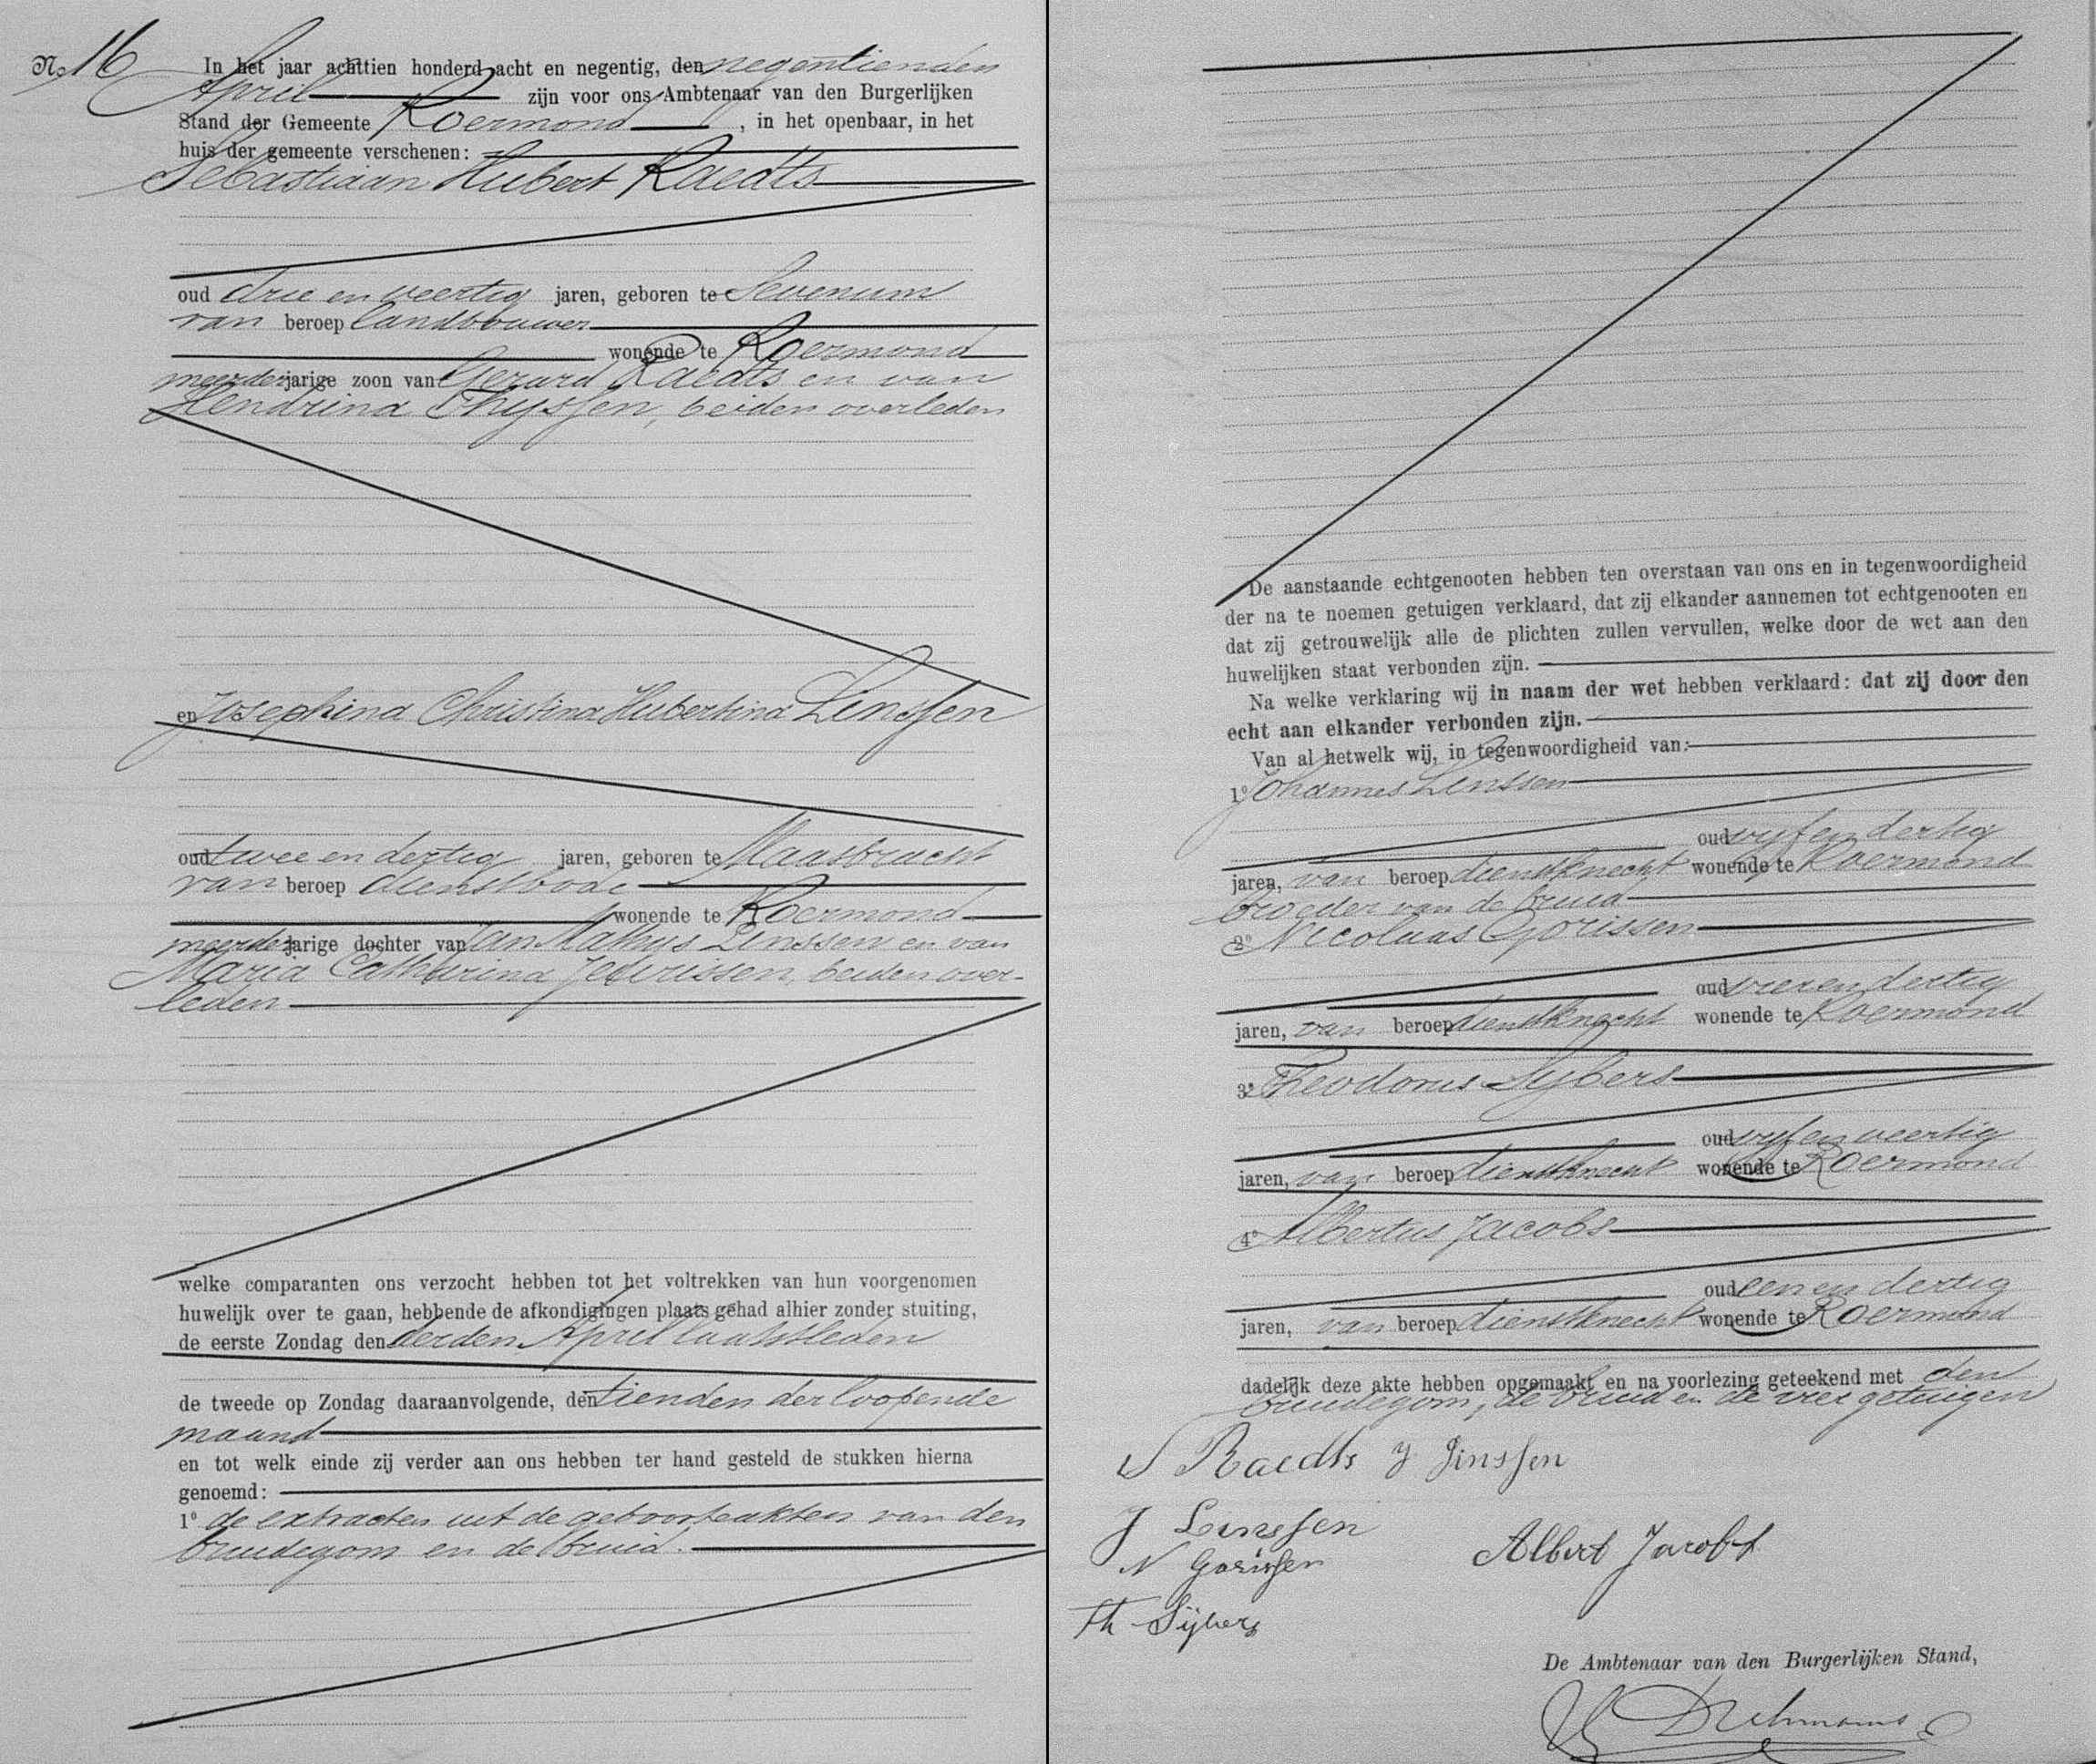 No 16
In het jaar achttien honderd acht en negentig, den negentienden
April zijn voor ons Ambtenaar van den Burgerlijken
Stand der Gemeente Roermond, in het openbaar, in het
huis der gemeente verschenen:
Sebastiaan Hubert Raedts
oud drie en veertig jaren, geboren te Sevenum
van beroep landbouwer
wonende te Roermond
meerderjarige zoon van Gerard Raedts en van
Hendrina Thyssen, beiden overleden
en Josephina Christina Hubertina Linssen
oud twee en dertig jaren, geboren te Maasbracht
van beroep dienstbode
wonende te Roermond
meerderjarige dochter van Jan Mathys Linssen en van
Maria Catharina beiden over-
leden
welke comparanten ons verzocht hebben tot het voltrekken van hun voorgenomen
huwelijk over te gaan, hebbende de afkondigingen plaats gehad alhier zonder stuiting,
de eerste Zondag den derden April laatstleden
de tweede op Zondag daaraanvolgende, den tienden der loopende
maand
en tot welk einde zij verder aan ons hebben ter hand gesteld de stukken hierna
genoemd:
1o de extracten uit de geboorteakten van den
bruidegom en de bruid.
De aanstaande echtgenooten hebben ten overstaan van ons en in tegenwoordigheid
der na te noemen getuigen verklaard, dat zij elkander aannemen tot echtgenooten en
dat zij getrouwelijk alle de plichten zullen vervullen, welke door de wet aan den
huwelijken staat verbonden zijn.
Na welke verklaring wij in naam der wet hebben verklaard: dat zij door den
echt aan elkander verbonden zijn.
Van al hetwelk wij, in tegenwoordigheid van:
1o Johannes Linssen
oud vyf en dertig
jaren, van beroep dienstknecht wonende te Roermond
broeder van de bruid
2o Nicolaas Gorissen
oud vier en dertig
jaren, van beroep dienstknecht wonende te Roermond
3o Theodorus Sybers
oud vyf en veertig
jaren, van beroep dienstknecht wonende te Roermond
4o Albertus Jacobs
oud een en dertig
jaren, van beroep dienstknecht wonende te Roermond
dadelijk deze akte hebben opgemaakt en na voorlezing geteekend met den
bruidegom, de bruid en de vier getuigen
S Raedts J Linssen
J Linssen
N Gorissen
Albert Jacobs
Th Sijbers
De Ambtenaar van den Burgerlijken Stand,